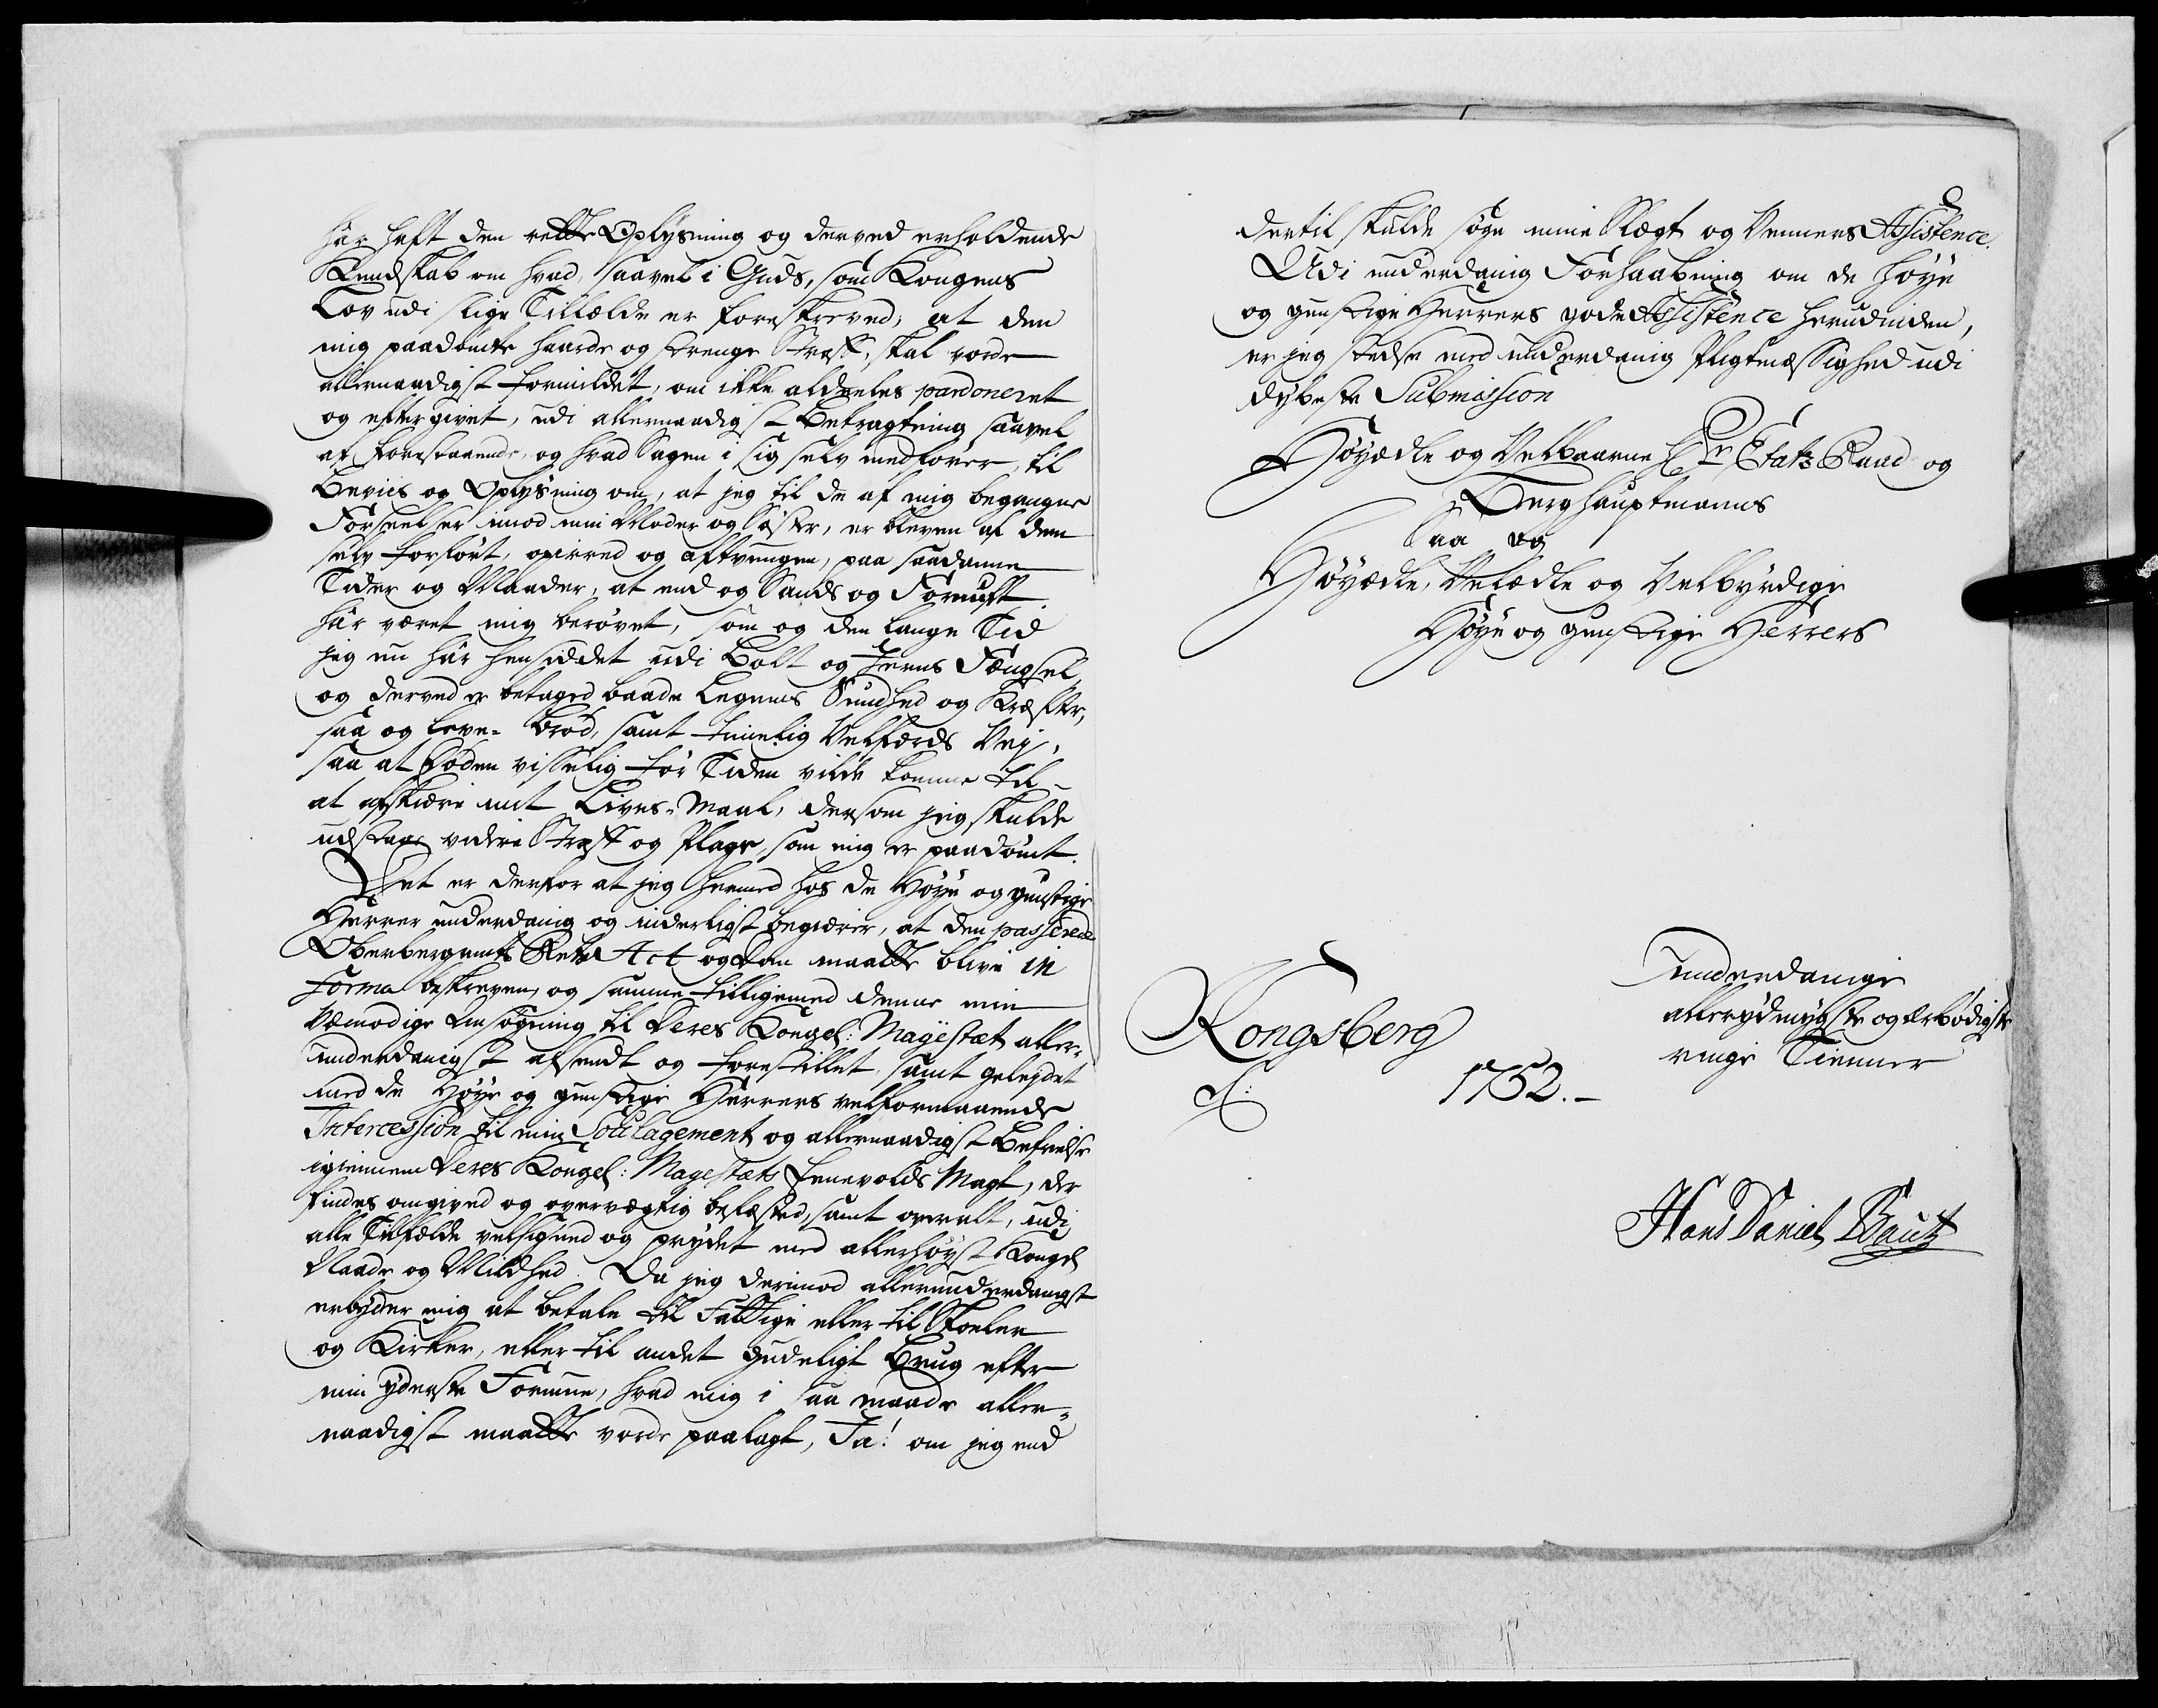 har haft den rette Oplysning og derved erholdende
Kundskab om hvad, saavel i Guds, som Kongens
Lov udi slige Tilfælde er foreskreved, at den
mig paadømte haarde og strenge Straff, skal vorde
allernaadigst formildet, om ikke aldeeles pardoneret
og eftergivet, udi allernaadigst Betragtning saavel
af forestaaende, og hvad Sagen i sig selv medfører, til
Beviis og Oplysning om, at jeg til de af mig begangne
Forseelser imod min Moder og Søster, er bleven af dem
selv forført, opirred og aftvungen, paa saadanne
Tider og Maader, at end og Sands og Fornuft
har været mig berøvet, som og den lange Tid
jeg nu har hensiddet udi Bolt og Jerns Fængsel,
og derved er betaged baade Legems Sundhed og Kræfter,
saa og leve-Brød, samt timelig Velfærds Vej,
saa at Døden visselig før Tiden vilde komme til
at afskiære mit Lives-Maal, dersom jeg skulde
udstaae videre Straff og Plage, som mig er paadømt.
Det er derfor at jeg hermed hos de Høye og gunstige
Herrer underdanig og inderligst begiærer, at den passerede
Oberbergamts Rets Act og Dom maatte blive in
forma beskreven, og samme tilligemed denne min
Vemodige Ansøgning til Deres Kongel: Mayestæt aller-
underdanigst afsendt og forestillet, samt geleydet
med de Høye og gunstige Herrers velformaaende
Intercession til min Soulagement og allernaadigst Befrielse
igiennem Deres Kongel: Mayestæts Eenevolds Magt, der
findes omgived og overvægtig befæsted, samt overalt, udi
alle Tilfælde velsigned og prydet med allerhøyst Kongel
Naade og Mildhed. Da jeg derimod allerunderdanigst
erbyder mig at betale til Fattige eller til Skoeler
og Kirker, eller til andet Gudeligt Brug efter
min yderste Formue, hvad mig i saa maade aller-
naadigst maatte vorde paalagt, Ja! om jeg end
dertil skulde søge mine Slægt og Venners Assistence.
Udi underdanig Forhaabning om de høye
og gunstige Herrers gode Assistence herudinden,
er jeg stedse med underdanig Pligtmæssighed udi
dybeste Submission
Høyædle og Velbaarne Hr Etats Raad og
Berghauptmanns
Saa og
Høyædle, Velædle og Velbyrdige
Høye og gunstige Herrers
Underdanige
allerydmygste og ærbødigste
ringe Tienner
Kongsberg
d: 1752.-
Hans Daniel Bautz